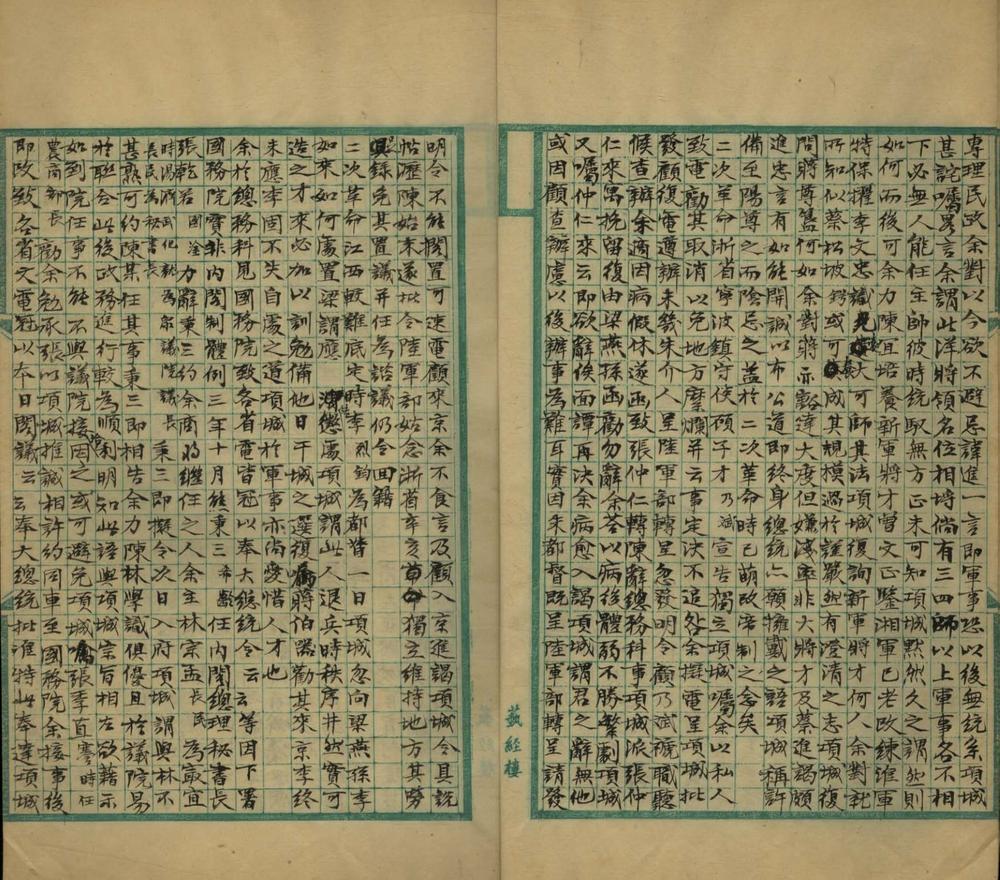 專理民政余對以今欲不避忌諱進一言即軍事恐以後無統系項城
甚詫囑畧言余謂此洋將領名位相埒倘有三四師以上軍事各不相
下必無人能任主帥彼時統馭無方正未可知項城默然久之謂然則
如何而後可余力陳宜培養新軍將才曾文正鑒湘軍已老改練淮軍
特保擢李文忠識大可師其法項城復詢新軍將才何人余對就
所知似蔡松坡鍔或可成其規模過於謹嚴然有澄清之志項城復
問蔣尊簋何如余對蔣亦豁達大度但嫌非大將才及蔡進謁頗
進忠言有如能開誠以布公道即終身總統亦願擁戴之語項城稱許
備至陽尊之而陰忌之蓋於二次革命時已萌改帝制之念矣
二次革命浙省寧波鎮守使顧子才乃斌宣告獨立項城囑余以私人
致電勸其取消以免地方糜爛并云事定決不追咎余撰電呈項城批
發顧復電遵辦未幾朱介人呈陸軍部轉呈忽發明令顧乃斌褫職聽
候查辦余適因病假休遂函致張仲仁轉陳辭總務科事項城派張仲
仁來寓挽留復由梁燕孫函勸勿辭余答以病後體弱不勝繁劇項城
又囑仲仁來云即欲辭俟面譚再決余病愈入謁項城謂君之辭無他
或因顧查辦慮以後辦事為難耳實因朱都督既呈陸軍部轉呈請發
明令不能擱置可速電顧來京余不食言及顧入京進謁項城令具說
帖瀝陳始末遂批令陸軍部姑念浙省辛亥獨立維持地方其勞
錄免其置議并任為諮議仍令回籍
二次革命江西較難底定時李烈鈞為都督一日項城忽向梁燕孫李
如來如何處置梁謂應處項城謂此人退兵時秩序井然實可
造之才來必加以訓勉備他日干城之選復囑蔣伯器勸其來京李終
未應李固不失自處之道項城於軍事亦尚愛惜人才也
余於總務科見國務院致各省電皆冠以奉大總統令云云等因下署
國務院實非內閣制體例三年十月熊秉三希齡任內閣總理秘書長
張乾若國淦力辭秉三約余商將繼任之人余主林宗孟長民為最宜
時湯濟武化龍為眾議院議長
長民為秘書長
秉三即擬令次日入府項城謂與林不
甚熟可約陳某任其事秉三即相告余力陳林學識俱優且於議院易
於聯合此後政務進行較為順利明知此語與項城宗旨相左欲藉示
如到院任事不能不與議院接因之或可避免項城囑張季直謇時任
農商部長勸余勉承張以項城推誠相許約同車至國務院余接事後
即改致各省文電冠以本日閣議云云奉大總統批准特此奉達項城
蓺經樓